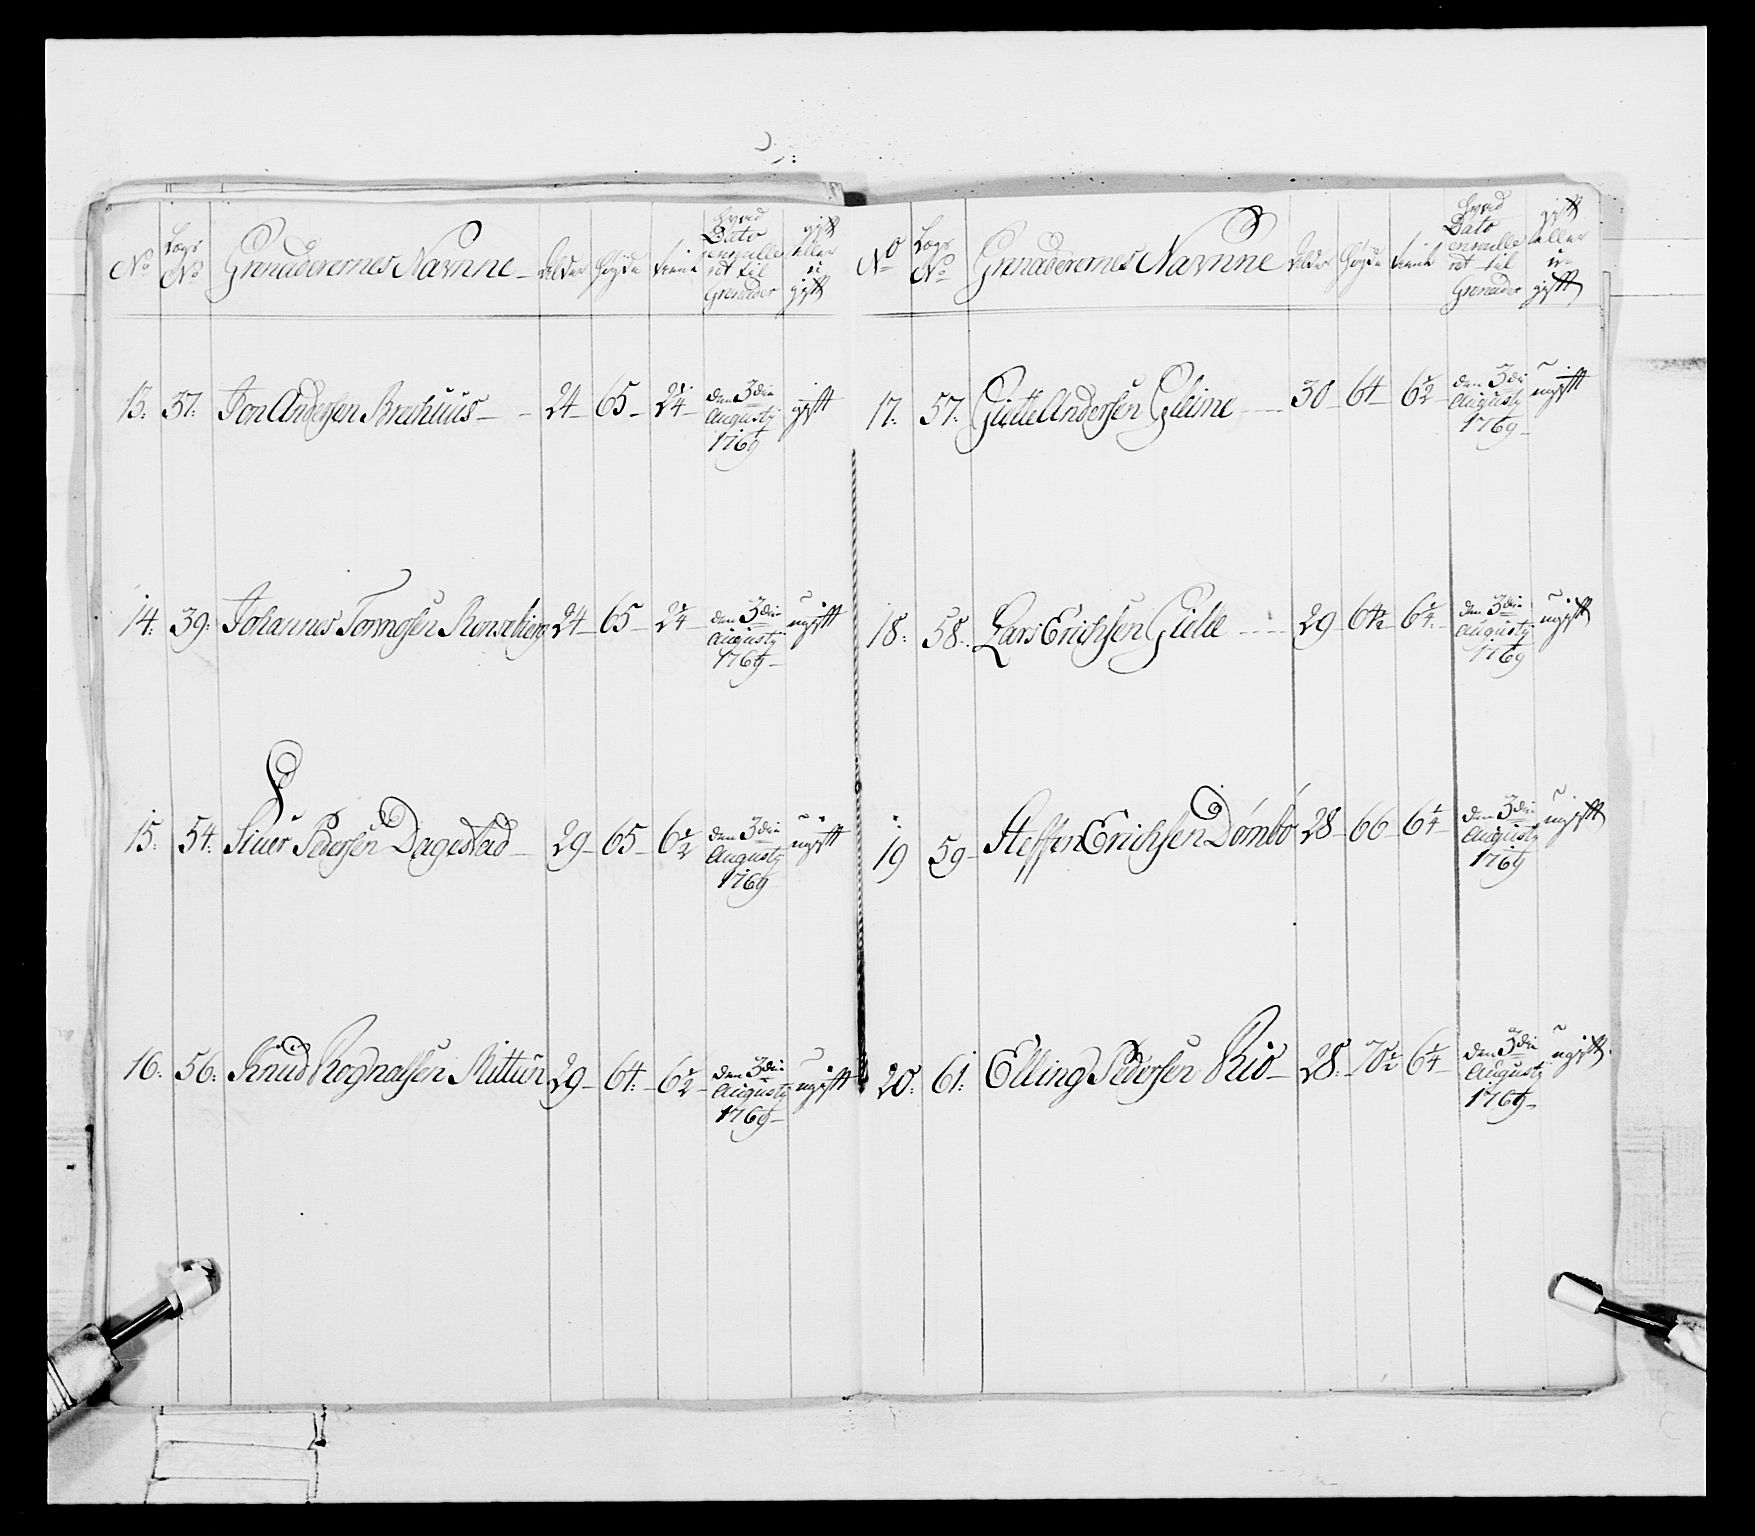 No Lægs No Grenaderernes Navnne Alder Høyde tient hvad Dato enroulleret til Grenader gift eller u gift
13: 37: Jon Andersen Brechuus 24 65 2¼ den 3die Augusty 1769 gift
14: 39: Johannes Tormosen Ronseberg 24 65 2¼ den 3die Augusty 1769 ugift
15: 54: Siuer Pedersen Dagestad 29 65 6½ den 3die Augusty 1769 ugift
16: 56: Knud Rognalsen Mittun 29 64: 6½ den 3die Augusty 1769 ugift
No Lægs No Grenaderernes Navnne Alder Høyde tient hvad Dato enroulleret til Grenader gift eller u gift
17: 57: Giette Andersen Gleime 30 64 6½ den 3die Augusty 1769 ugift
18: 58: Lars Erichsen Gielle 29 64½ 6¼ den 3die Augusty 1769 ugift
19 59 Steffen Erichsen Dømbo 28 66 6¼ den 3die Augusty 1769 ugift
20: 61: Elling Pedersen Rio 28: 70½ 6¼ den 3die Augusty 1769 ugift